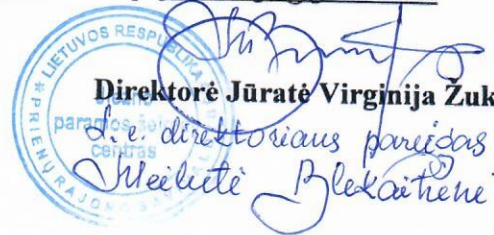 LIETUVOS RESPUBLIKA
PRIENŲ RAJONO
paramos šeimai
centras
Direktorė Jūratė Virginija Žuk
L. e. direktoriaus pareigas
Meilutė Blekaitienė